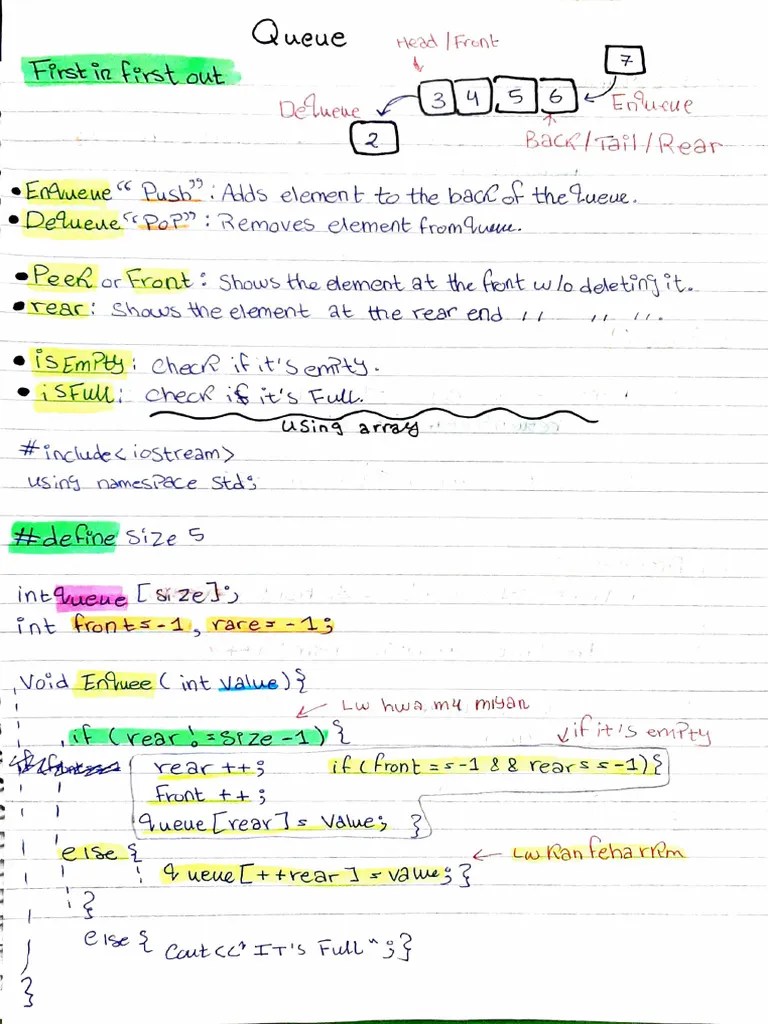 Queue
Head / Front
First in first out
7
3 4 5 6
DeQueue
EnQueue
2
Back/Tail/Rear
• EnQueue “Push” : Adds element to the back of the Queue.
• DeQueue “PoP” : Removes element from Queue.
• Peek or Front : Shows the element at the front w/o deleting it.
• rear : Shows the element at the rear end ,, ,, ,,.
• isEmpty : Check if it's empty.
• isFull : Check if it's Full.
Using array
#include<iostream>
using namespace std;
#define Size 5
int queue [size];
int front=-1, rare=-1;
Void Enquee (int value){
Lw hwa m4 miyan
if (rear != Size -1) {
if it's empty
rear ++; if (front ==-1 && rear==-1){
front ++;
queue [rear] = value; }
else {
Lw kan feh arkkm
queue [++rear] = value; }
}
else { Cout<<"IT's Full" ;}
}